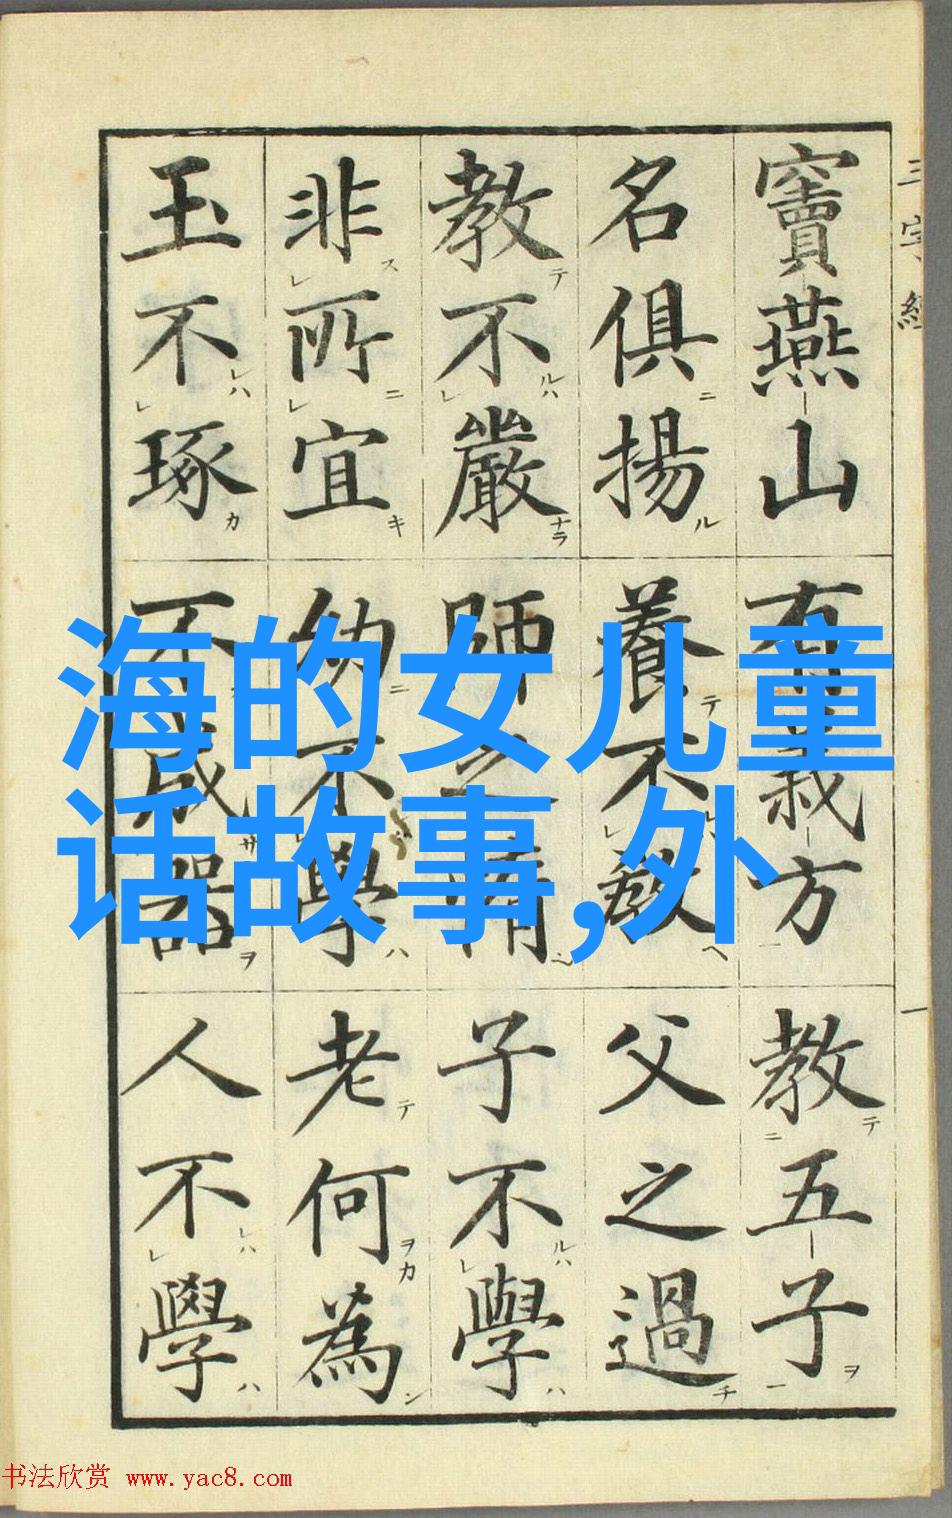 三字經
竇燕山有義方教五子
名俱揚養不教父之過
教不嚴師之惰子不學
非所宜幼不學老何為
玉不琢不成器人不學
一
海的女儿童
话故事,外
书法欣赏 www.yac8.com